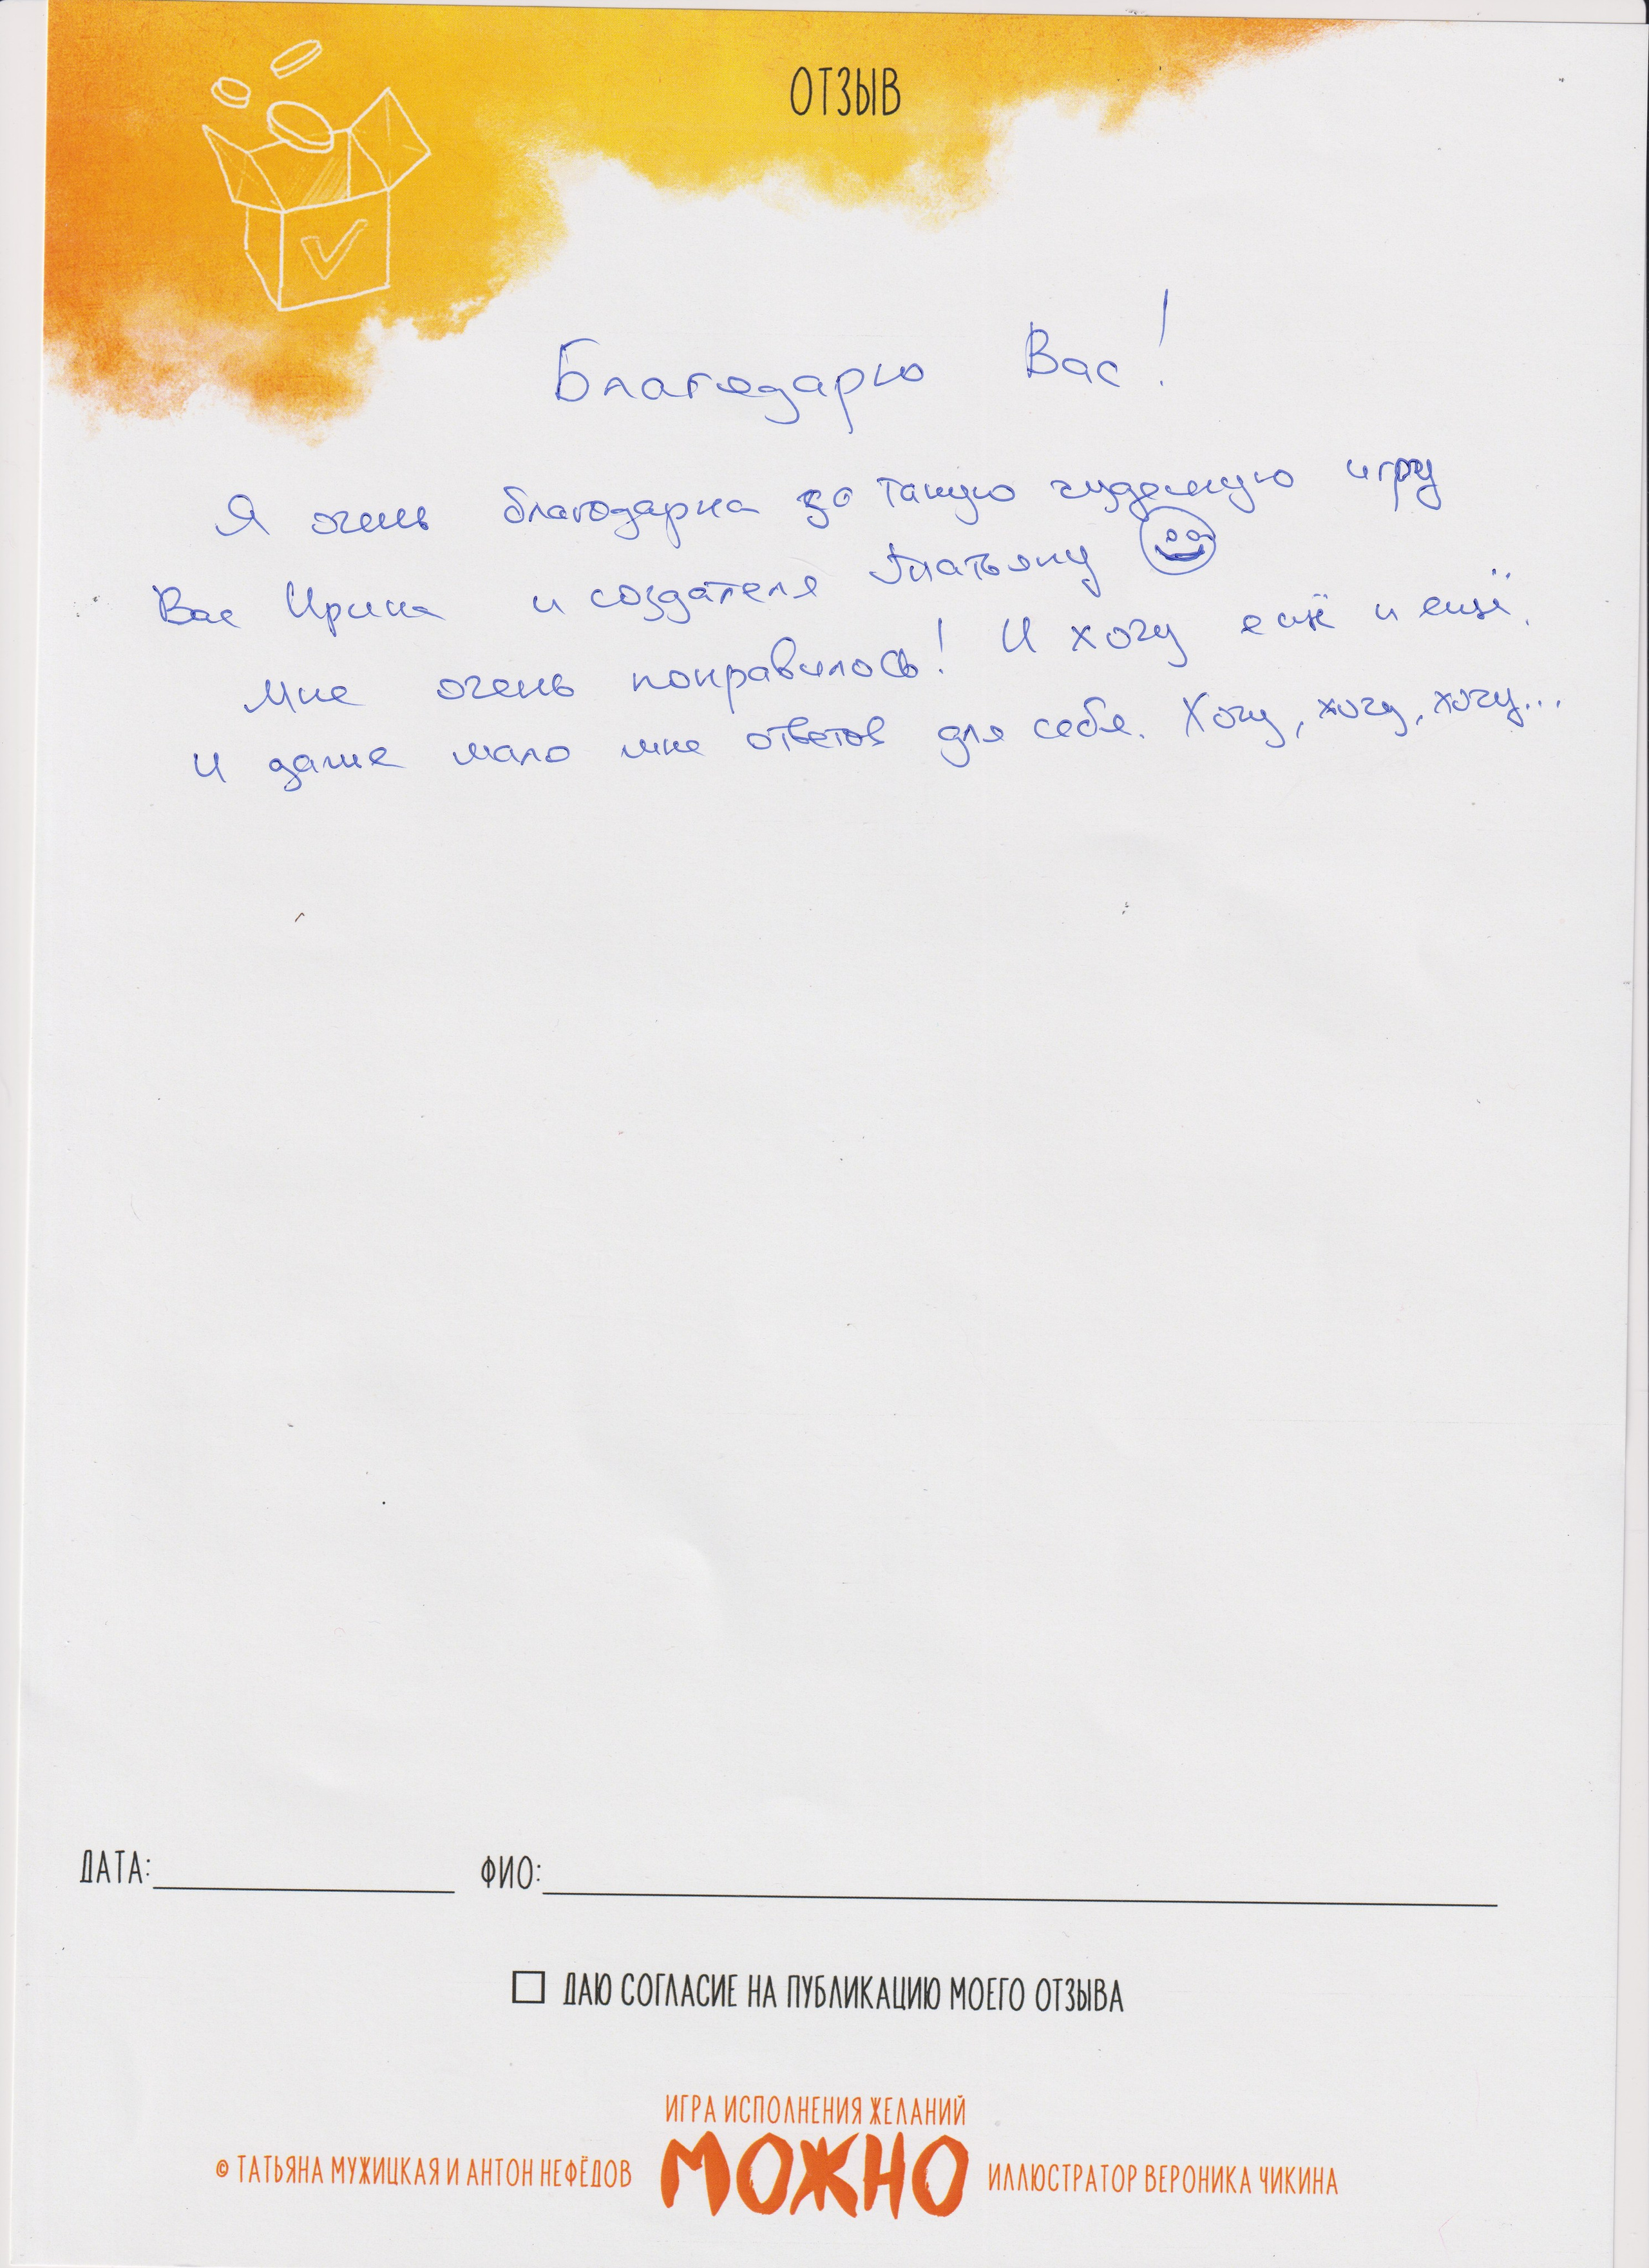 ОТЗЫВ
Благодарю Вас!
Я очень благодарна за такую чудесную игру
Вас Ирина и создателя Татьяну
Мне очень понравилось! И хочу ещё и ещё.
И даже мало мне ответов для себя. Хочу, хочу, хочу...
ДАТА: ФИО:
ДАЮ СОГЛАСИЕ НА ПУБЛИКАЦИЮ МОЕГО ОТЗЫВА
ИГРА ИСПОЛНЕНИЯ ЖЕЛАНИЙ
© ТАТЬЯНА МУЖИЦКАЯ И АНТОН НЕФЁДОВ МОЖНО ИЛЛЮСТРАТОР ВЕРОНИКА ЧИКИНА